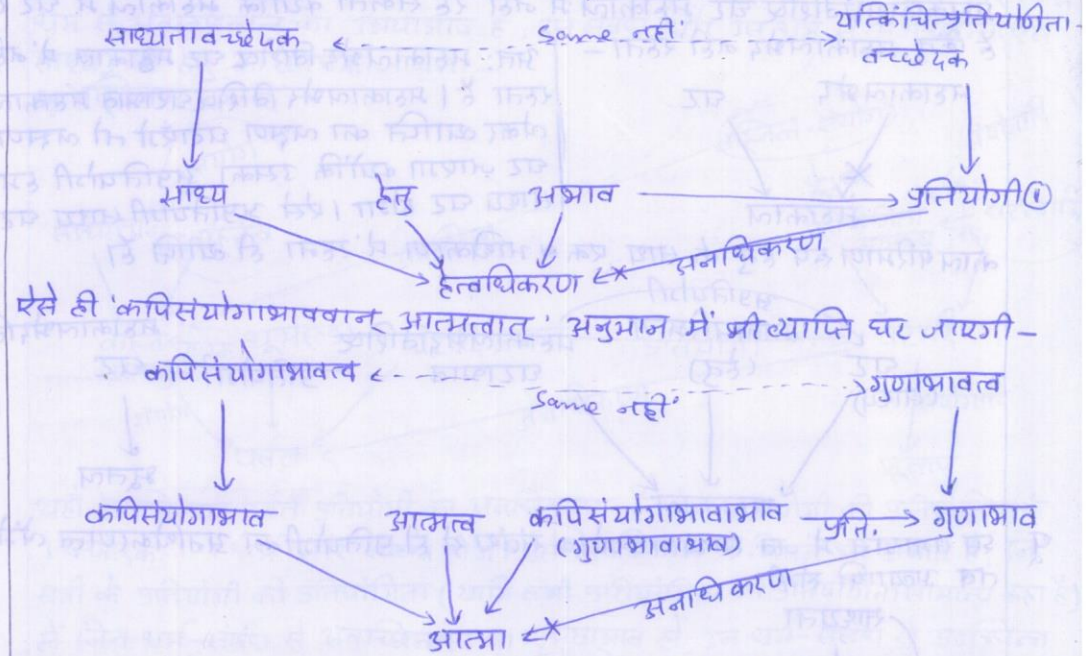 साध्यतावच्छेदक same नहीं यत्किंचित्प्रतियोगिता-
वच्छेदक
साध्य हेतु अभाव प्रतियोगी ①
समाधिकरण
हेत्वधिकरण
ऐसे ही 'कपिसंयोगाभाववान आत्मत्वात' अनुमान में भी व्याप्ति घट जाएगी-
कपिसंयोगाभावत्व same नहीं गुणाभावत्व
कपिसंयोगाभाव आत्मत्व कपिसंयोगाभावाभाव प्रति. गुणाभाव
(गुणाभावाभाव)
समाधिकरण
आत्मा